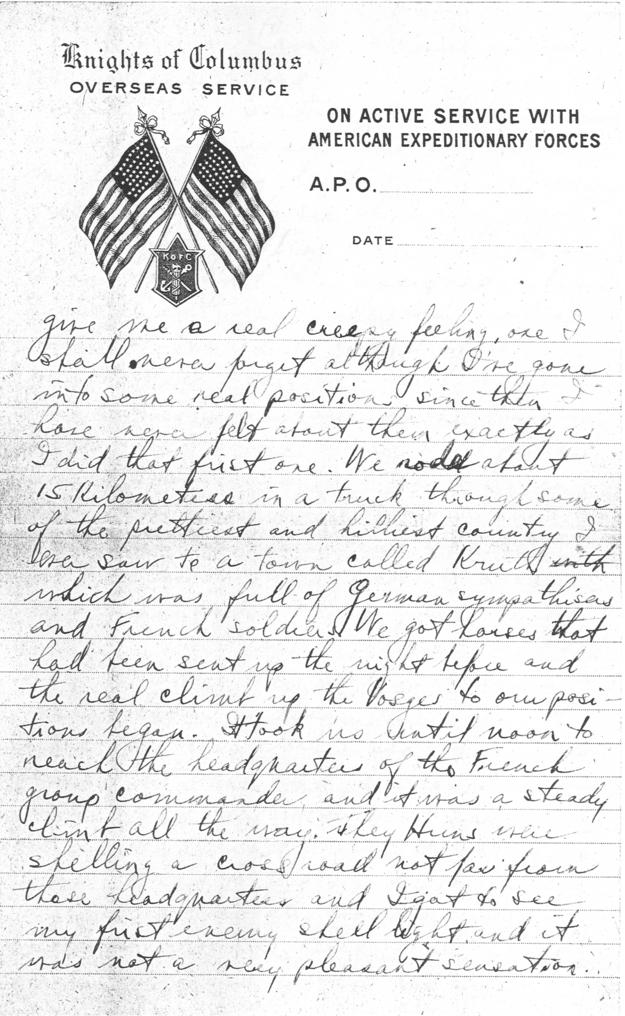 Knights of Columbus
OVERSEAS SERVICE
ON ACTIVE SERVICE WITH
AMERICAN EXPEDITIONARY FORCES
A.P.O.
DATE
K OF C
give me a real creepy feeling, one I
shall never forget although I've gone
into some real positions since then I
have never felt about them exactly as
I did that first one. We rode about
15 Kilometers in a truck through some
of the prettiest and hilliest country I
ever saw to a town called Kruth with
which was full of German sympathisers
and French soldiers. We got horses that
had been sent up the night before and
the real climb up the Vosges to our posi-
tions began. It took us until noon to
reach the headquarters of the French
group commander and it was a steady
climb all the way. They Huns were
shelling a cross road not far from
those headquarters and I got to see
my first enemy shell light and it
was not a very pleasant sensation.